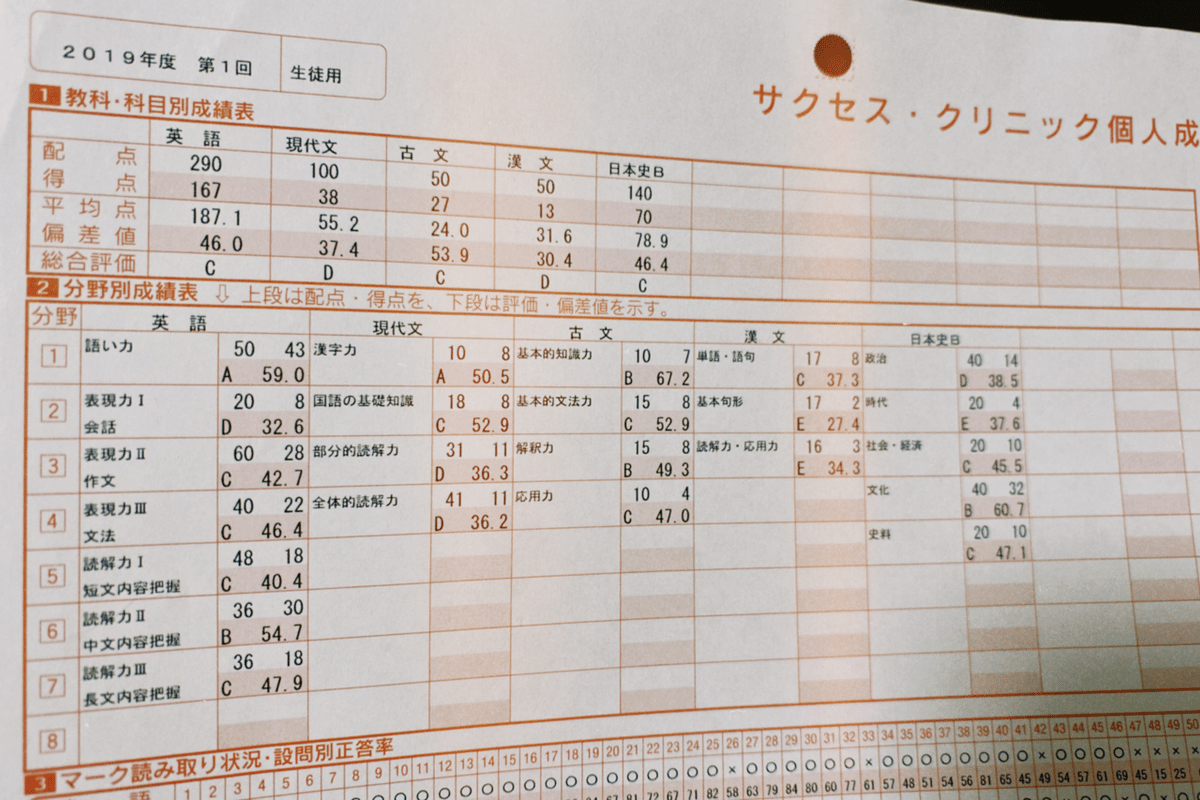 2019年度 第1回 生徒用
サクセス・クリニック個人成
1 教科・科目別成績表
英語 現代文 古文 漢文 日本史B
配点 290 100 50 50 140
得点 167 38 27 13 70
平均点 187.1 55.2 24.0 31.6 78.9
偏差値 46.0 37.4 53.9 30.4 46.4
総合評価 C D C D C
2 分野別成績表 ⇩ 上段は配点・得点を、下段は評価・偏差値を示す。
分野 英語 現代文 古文 漢文 日本史B
1 語い力 50 43 漢字力 10 8 基本的知識力 10 7 単語・語句 17 8 政治 40 14
A 59.0 A 50.5 B 67.2 C 37.3 D 38.5
2 表現力Ⅰ 20 8 国語の基礎知識 18 8 基本的文法力 15 8 基本句形 17 2 時代 20 4
会話 D 32.6 C 52.9 C 52.9 E 27.4 E 37.6
3 表現力Ⅱ 60 28 部分的読解力 31 11 解釈力 15 8 読解力・応用力 16 3 社会・経済 20 10
作文 C 42.7 D 36.3 B 49.3 E 34.3 C 45.5
4 表現力Ⅲ 40 22 全体的読解力 41 11 応用力 10 4 文化 40 32
文法 C 46.4 D 36.2 C 47.0 B 60.7
5 読解力Ⅰ 48 18 史料 20 10
短文内容把握 C 40.4 C 47.1
6 読解力Ⅱ 36 30
中文内容把握 B 54.7
7 読解力Ⅲ 36 18
長文内容把握 C 47.9
8
3 マーク読み取り状況・設問別正答率
1 2 3 4 5 6 7 8 9 10 11 12 13 14 15 16 17 18 19 20 21 22 23 24 25 26 27 28 29 30 31 32 33 34 35 36 37 38 39 40 41 42 43 44 45 46 47 48 49 50